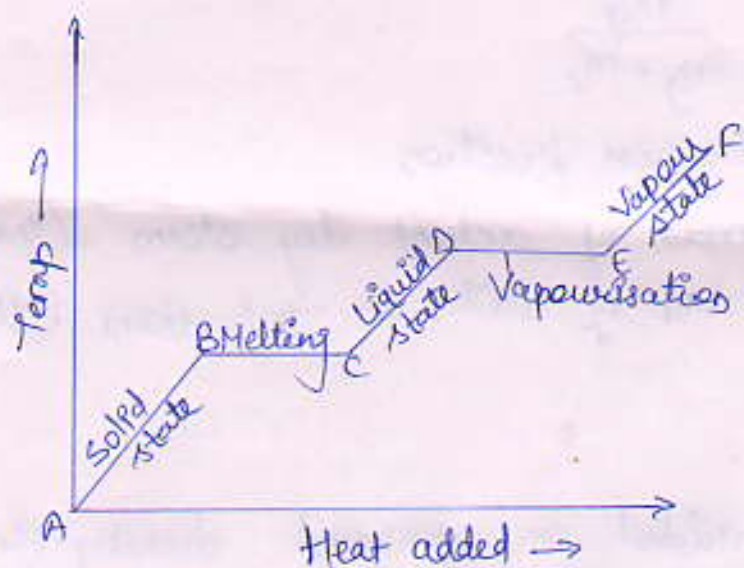 Temp →
A
Solid
state
B Melting
C
Liquid
state
D
Vapourisation
E
Vapour
state
F
Heat added →